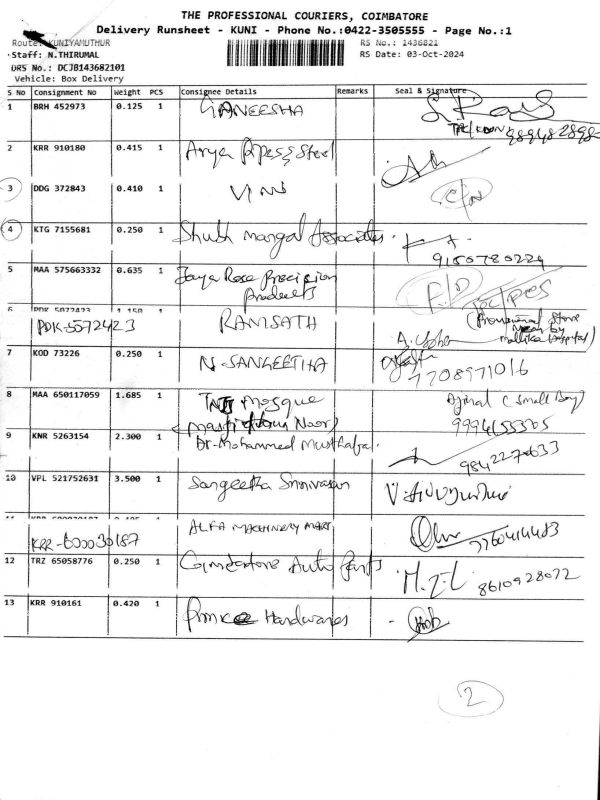 THE PROFESSIONAL COURIERS, COIMBATORE
Delivery Runsheet - KUNI - Phone No.:0422-3505555 - Page No.:1
Route: KUNIYAMUTHUR RS No.: 1436821
Staff: N.THIRUMAL RS Date: 03-Oct-2024
DRS No.: DCJB143682101
Vehicle: Box Delivery
S No Consignment No Weight PCS Consignee Details Remarks Seal & Signature
1 BRH 452973 0.125 1 GANEESHA
2 KRR 910180 0.415 1 Arya Pipes & Steel
3 DDG 372843 0.410 1
4 KTG 7155681 0.250 1 Shubh mangal Associates
9150780229
5 MAA 575663332 0.635 1 Jaya Rose Precision
Products
6 PDK 5072423 1.150 1 RANISATH
(Provisional Store
Near by
mallika Hospital)
7 KOD 73226 0.250 1 N-SANGEETHA
7708971016
8 MAA 650117059 1.685 1 Mosque
Ajmal (Small Boy)
9 KNR 5263154 2.300 1 Dr-Mohammed Musthafa
10 VPL 521752631 3.500 1 Sangeetha Srinivasan
KRR-600030187 ALFA MACHINERY MART
12 TRZ 65058776 0.250 1 Coimbatore Auto Parts M.I.L 8610928072
13 KRR 910161 0.420 1 Prince Hardwares
2